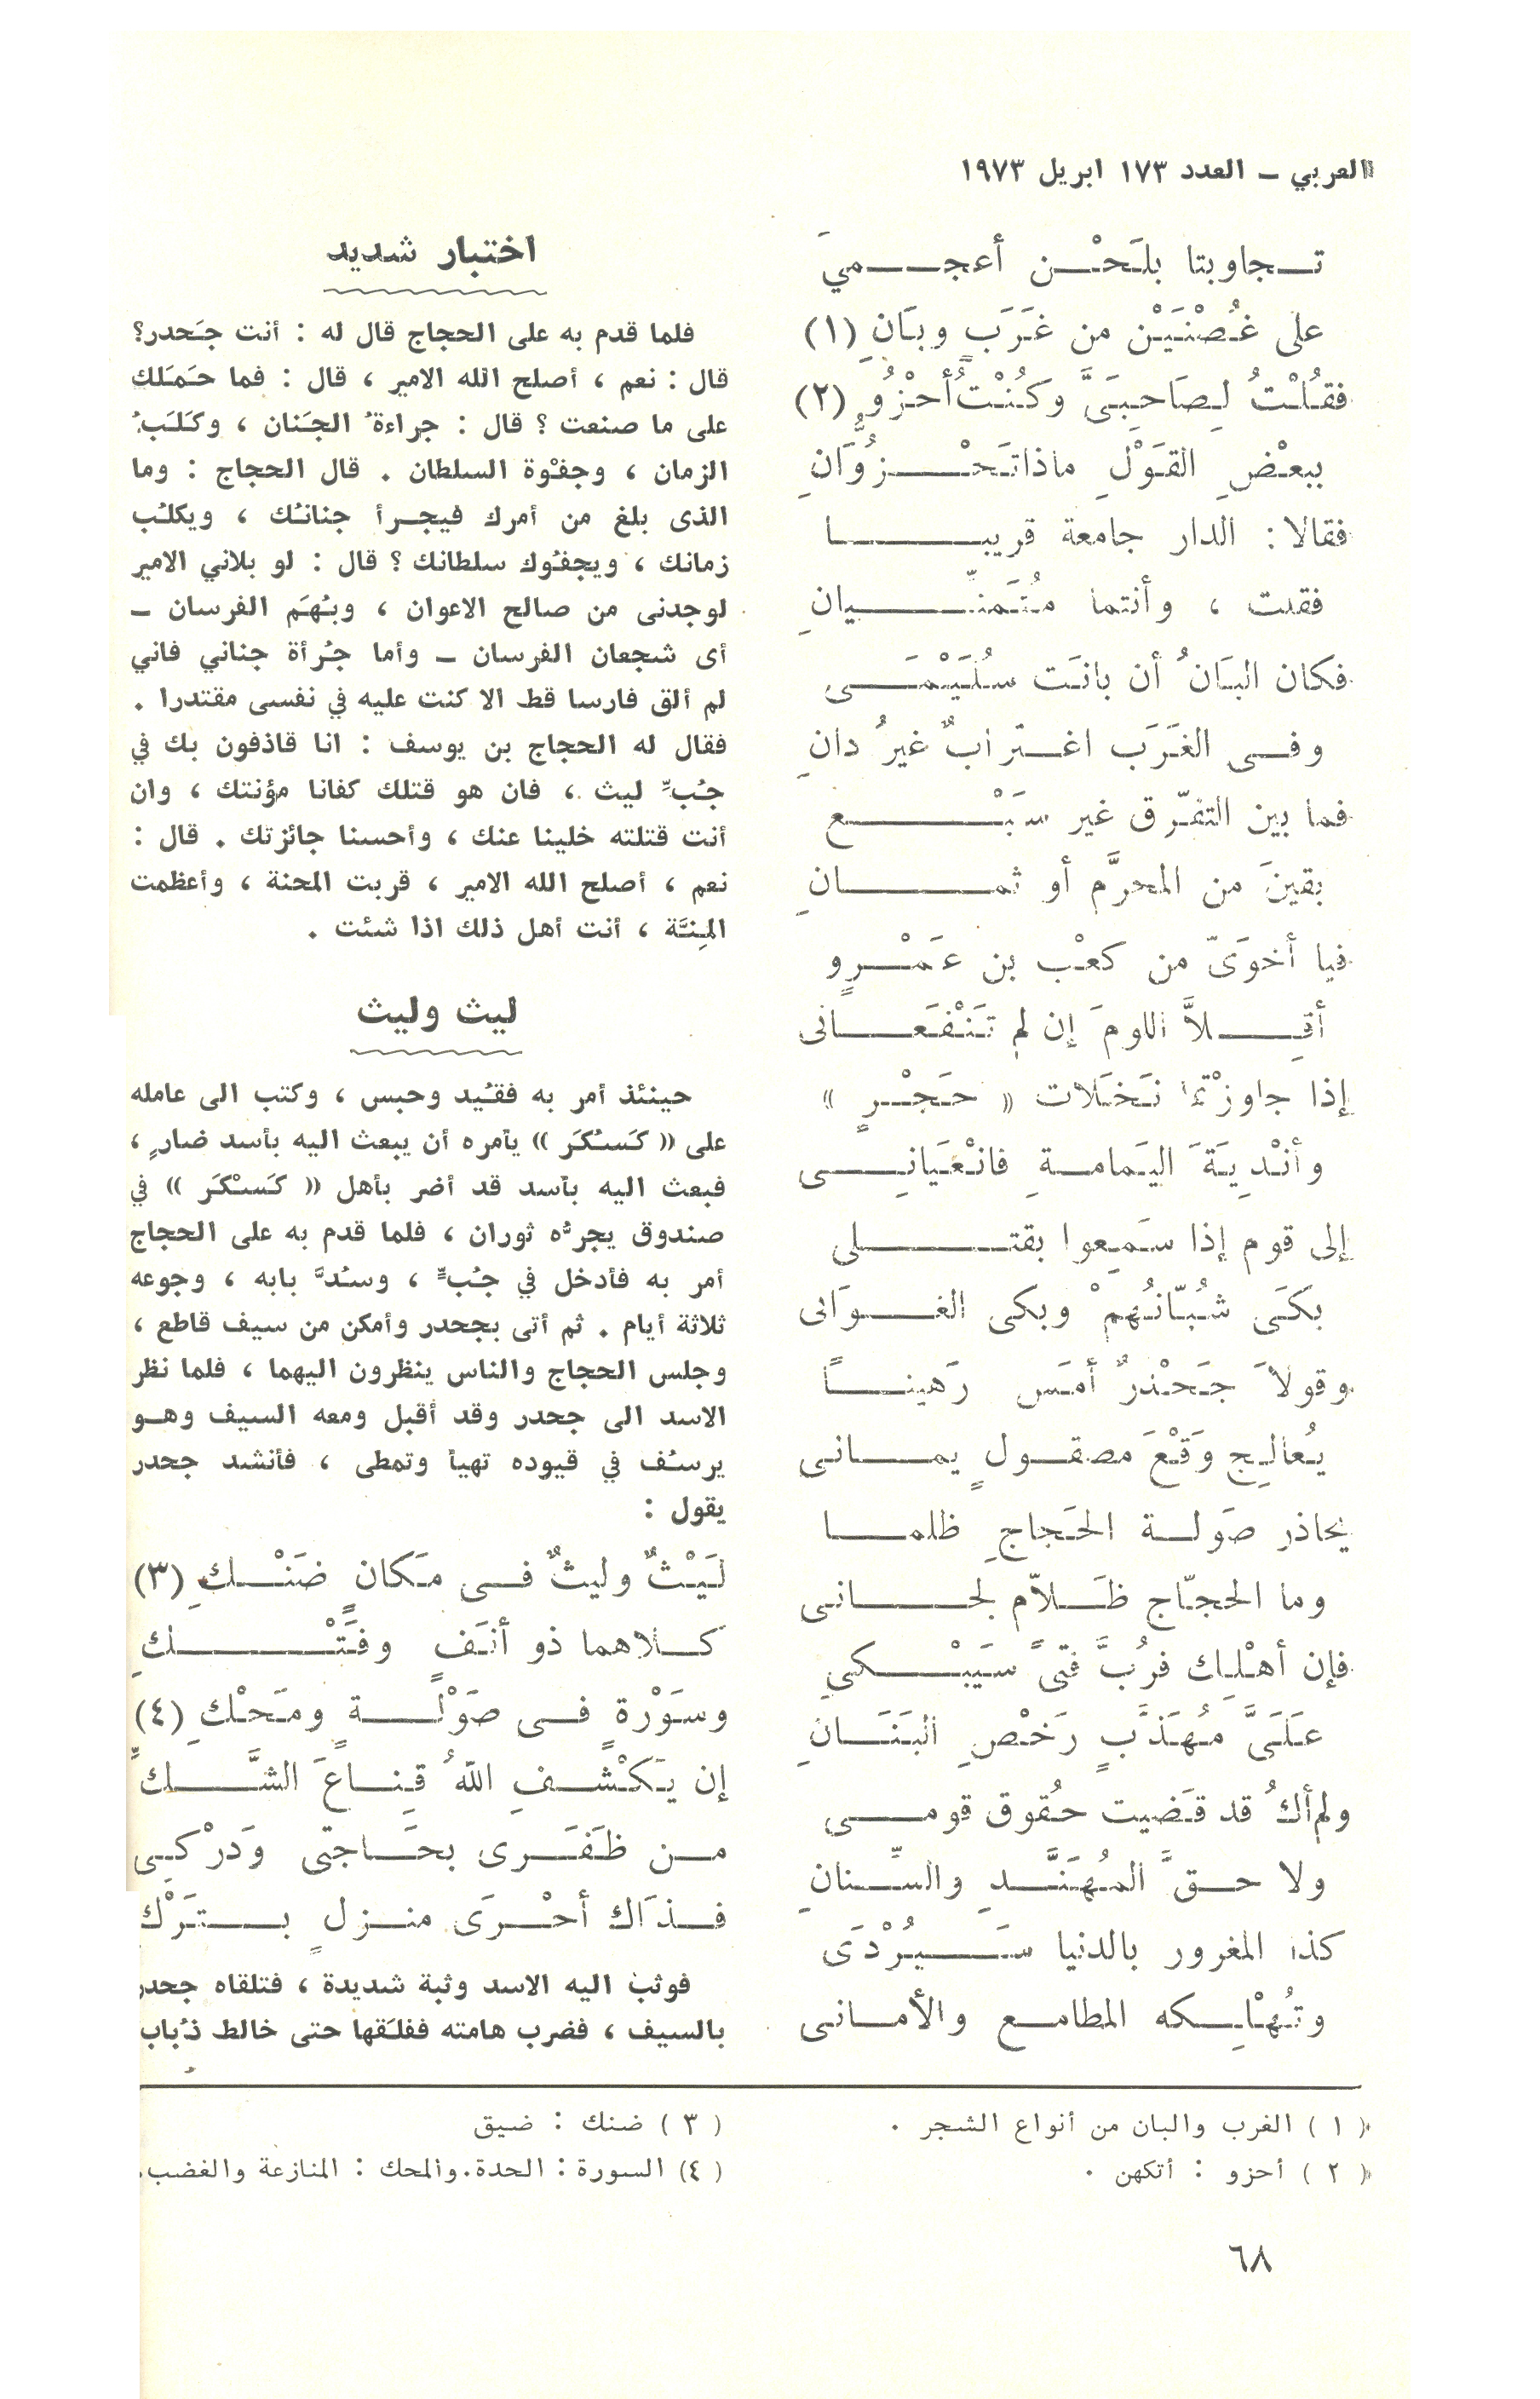 العربي – العدد ١٧٣ ابريل ١٩٧٣
تجاوبتا بلَحْن أعجمي
على غُصْنَيْن من غَرَبٍ وبَانِ (١)
فقُلْتُ لِصَاحِبَيَّ وكُنْتُ أحْزُو (٢)
ببعْضِ القَوْلِ ماذا تَحْزُوَانِ
فقالا : الدار جامعة قريبا
فقلت ، وأنتما مُتَمنّيانِ
فكان البَانُ أن بانَت سُلَيْمَى
وفى الغَرَب اغترابٌ غيرُ دانِ
فما بين التفرّق غير سَبْع
بقينَ من المحرَّم أو ثمانِ
فيا أخوَىّ من كعْب بن عَمْرٍو
أقِلاَّ اللومَ إن لم تَنْفَعانى
إذا جاوزْتما نَخَلات « حَجْرٍ »
وأنْدِيَةَ اليَمامةِ فانْعَيانِى
إلى قوم إذا سَمِعوا بقتلى
بكَى شُبّانُهمْ وبكى الغوَانى
وقولاَ جَحْدرٌ أمسَ رَهيناً
يُعالِج وَقْعَ مصقولٍ يمانى
يحاذر صَولة الحَجاجِ ظلما
وما الحجّاج ظَلاّم لجانى
فإن أهْلِك فرُبَّ فتىً سَيَبْكي
عَلَىَّ مُهَذَّبٍ رَخْصِ البَنَانِ
ولم أكُ قد قَضيت حُقوق قومى
ولا حقَّ المُهَنَّدِ والسِّنانِ
كذا المغرور بالدنيا سَيُرْدَى
وتُهْلِكه المطامع والأمانى
اختبار شديد
فلما قدم به على الحجاج قال له : أنت جَحدر؟
قال : نعم ، أصلح الله الامير ، قال : فما حَمَلك
على ما صنعت ؟ قال : جراءةُ الجَنان ، وكَلَبُ
الزمان ، وجفْوة السلطان . قال الحجاج : وما
الذى بلغ من أمرك فيجرأ جنانُك ، ويكلُب
زمانك ، ويجفُوك سلطانك ؟ قال : لو بلاني الامير
لوجدنى من صالح الاعوان ، وبُهَم الفرسان –
أى شجعان الفرسان – وأما جُرأة جناني فاني
لم ألق فارسا قط الا كنت عليه في نفسى مقتدرا .
فقال له الحجاج بن يوسف : انا قاذفون بك في
جُبِّ ليث ، فان هو قتلك كفانا مؤنتك ، وان
أنت قتلته خلينا عنك ، وأحسنا جائزتك . قال :
نعم ، أصلح الله الامير ، قربت المحنة ، وأعظمت
المِنَّة ، أنت أهل ذلك اذا شئت .
ليث وليث
حينئذ أمر به فقُيد وحبس ، وكتب الى عامله
على « كَسْكَر » يأمره أن يبعث اليه بأسد ضارٍ ،
فبعث اليه بأسد قد أضر بأهل « كَسْكَر » في
صندوق يجرُّه ثوران ، فلما قدم به على الحجاج
أمر به فأدخل في جُبٍّ ، وسُدَّ بابه ، وجوعه
ثلاثة أيام . ثم أتى بجحدر وأمكن من سيف قاطع ،
وجلس الحجاج والناس ينظرون اليهما ، فلما نظر
الاسد الى جحدر وقد أقبل ومعه السيف وهو
يرسُف في قيوده تهيأ وتمطى ، فأنشد جحدر
يقول :
لَيْثٌ وليثٌ فى مَكانٍ ضَنْكِ (٣)
كلاهما ذو أنَفٍ وفَتْكِ
وسَوْرةٍ فى صَوْلةٍ ومَحْكِ (٤)
إن يَكْشفِ اللهُ قِناعَ الشَّكِّ
من ظَفَرى بحَاجتى وَدرْكِى
فذَاك أحْرَى منزلٍ بتَرْك
فوثب اليه الاسد وثبة شديدة ، فتلقاه جحدر
بالسيف ، فضرب هامته ففلَقها حتى خالط ذُباب
( ١ ) الغرب والبان من أنواع الشجر .
( ٢ ) أحزو : أتكهن .
( ٣ ) ضنك : ضيق
(٤) السورة : الحدة. والمحك : المنازعة والغضب.
٦٨